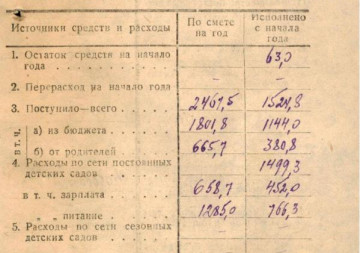 Источники средств и расходы По смете на год Исполнено с начала года
1. Остаток средств на начало
года . . . . . . . . . . . 63,0
2. Перерасход на начало года – –
3. Поступило—всего . . . . . 2467,5 1524,8
в т. ч. а) из бюджета . . . . . 1801,8 1144,0
б) от родителей . . . . 665,7 380,8
4. Расходы по сети постоянных
детских садов . . . . . . 1499,3
в т. ч. зарплата . . . . 658,7 452,0
„ „ питание . . . . . 1285,0 766,3
5. Расходы по сети сезонных
детских садов . . . . .